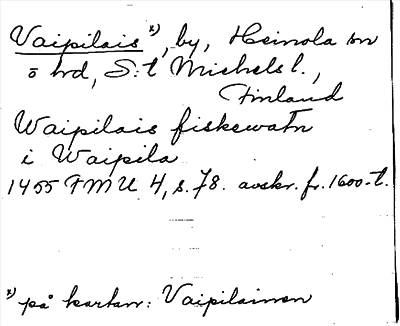 Vaipilais x), by, Heinola sn
o hd, S:t Michels l.,
Finland
Waipilais fiskewatn
i Waipila
1455 FMU 4, s. 78. avskr. fr. 1600-t.
x) på kartan: Vaipilainen